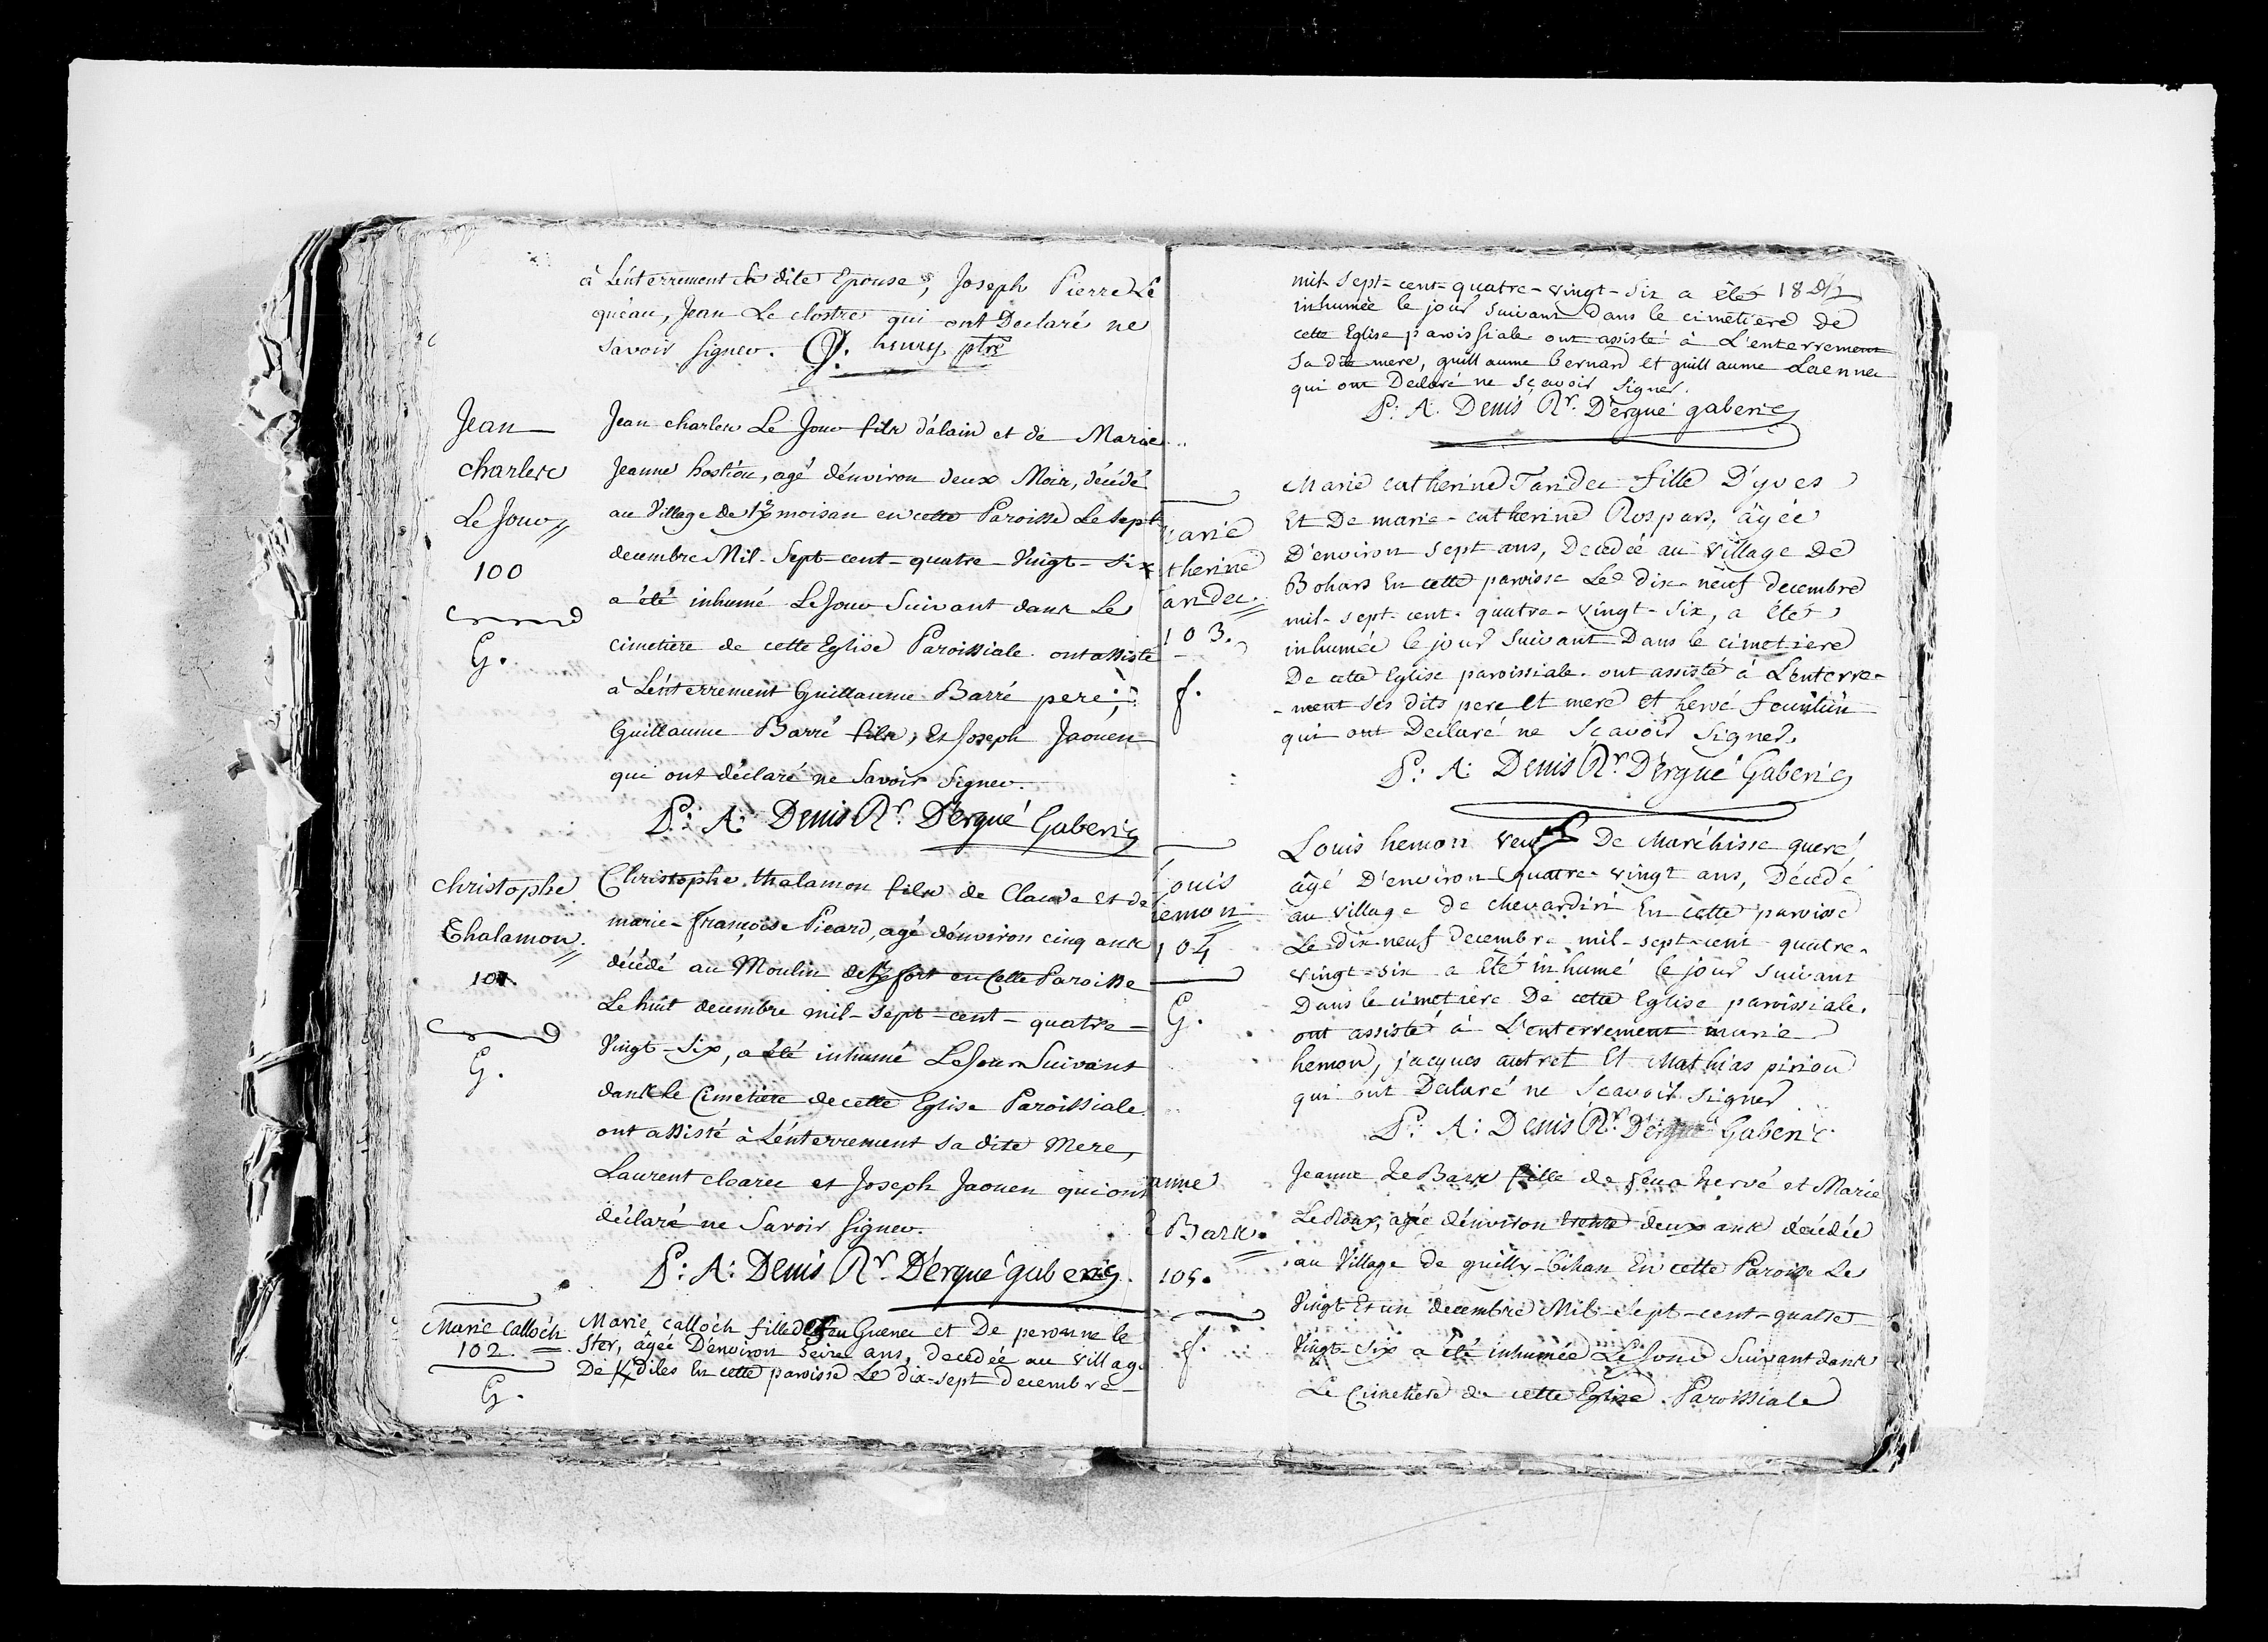 à L'enterrement la dite Epouse, Joseph Pierre Le
quéau, Jean Le clostre qui ont Declaré ne
savoir signer. henry ptre
Jean
charles
Le Jour
100
G.
Jean charles Le Jour fils d'alain et de Marie
Jeanne hostiou, agé d'environ deux Mois, décédé
au Village de Kmoisan en cette Paroisse Le sept
decembre Mil-Sept-cent-quatre-Vingt-Six
a été inhumé Le Jour Suivant dans Le
cimetiere de cette Eglise Paroissiale. ont assisté
à L'enterrement Guillaume Barré pere,
Guillaume Barré fils, et Joseph Jaouen
qui ont déclaré ne Savoir Signer.
P: A: Denis Rr. D'ergué Gaberic
christophe
Thalamon.
101.
G.
Christophe thalamon fils de Claude et de
marie-françoise Picard, agé d'environ cinq ans
décédé au Moulin de Kfort en cette Paroisse
Le huit decembre mil-sept-cent-quatre-
Vingt-Six, a été inhumé Le Jour Suivant
dans le Cimetiere de cette Eglise Paroissiale.
ont assisté à L'enterrement sa dite Mere,
Laurent claree et Joseph Jaouen qui ont
déclaré ne Savoir Signer.
P: A: Denis Rr. D'ergué gaberic
Marie Calloch
102.
G.
Marie calloch fille de feu Guenec et De peronne le
Ster, âgée D'environ Seize ans, decedée au village
De Kdiles En cette paroisse Le dix-sept decembre
mil-Sept-cent-quatre-vingt-six a été 18
inhumée le jour Suivant Dans le cimetiere de
cette Eglise paroissiale ont assisté à L'enterrement
Sa dite mere, guillaume bernard et guillaume Laennec
qui ont Declaré ne Sçavoir Signer.
P: A. Denis Rr. D'ergué gaberic
arie
therine
aridec.
103.
f.
Marie catherine Taridec fille D'yves
Et De marie-catherine Rospars, âgée
D'environ Sept ans, Decedée au Village de
Bohars En cette paroisse Le dix-neuf decembre
mil-sept-cent-quatre-vingt-Six, a été
inhumée le jour Suivant Dans le cimetiere
De cette Eglise paroissiale. ont assisté à L'enterre-
-ment ses dits pere et mere et hervé
qui ont Declaré ne Sçavoir Signer.
P: A: Denis Rr. D'ergué Gaberic
Louis
emon
104
G.
Louis hemon veuf De Maréhisse queré
âgé D'environ quatre-vingt ans, Décédé
au village de chevardiri En cette paroisse
Le dix-neuf decembre mil-sept-cent quatre-
vingt-six a été inhumé le jour suivant
Dans le cimetiere De cette Eglise paroissiale.
ont assisté à L'enterrement marie
hemon, jacques autret Et Mathias piriou
qui ont Declaré ne Scavoir signer
P: A: Denis Rr. D'ergué Gaberic
anne
Bars.
105.
f.
Jeanne Le Bars fille de feu hervé et Marie
Le Roux, agée d'environ trente deux ans décédée
au Village de quilly-bihan En cette Paroisse Le
Vingt Et un decembre Mil-Sept-cent-quatre
Vingt Six a été inhumée Le Jour Suivant dans
Le Cimetiere de cette Eglise Paroissiale